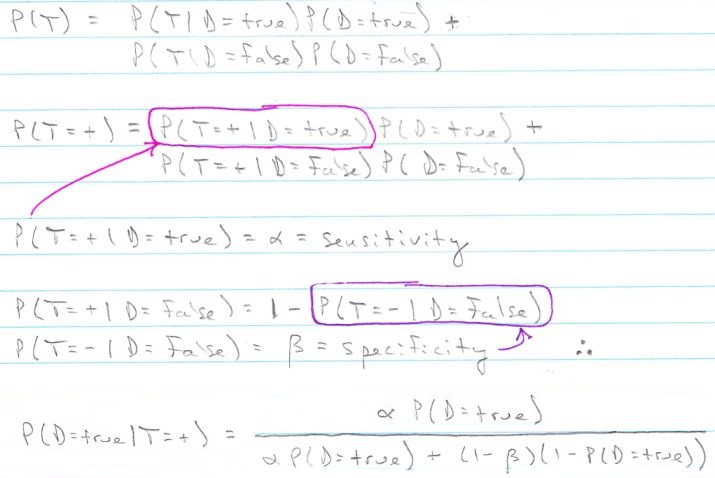 P(T) = P(T|D=true)P(D=true) +
P(T|D=false)P(D=false)
P(T=+) = P(T=+|D=true)P(D=true) +
P(T=+|D=False)P(D=False)
P(T=+|D=true) = α = sensitivity
P(T=+|D=False) = 1 - P(T=-|D=False)
P(T=-|D=False) = β = specificity ∴
α P(D=true)
P(D=true|T=+) =
α P(D=true) + (1-β)(1-P(D=true))